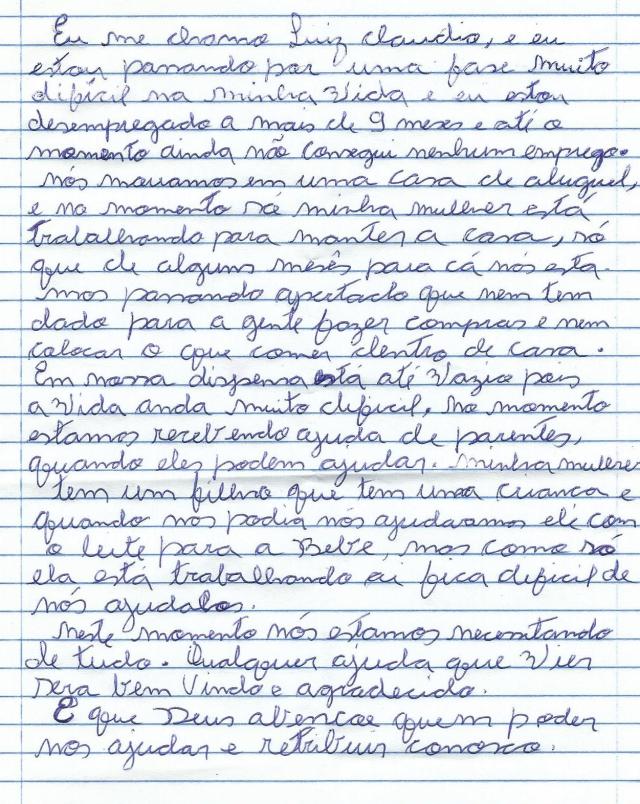 Eu me chamo Luiz Claudio, e eu
estou passando por uma fase muito
difícil na minha vida e eu estou
desempregado a mais de 9 meses e até o
momento ainda não consegui nenhum emprego.
nós moramos em uma casa de aluguel,
e no momento só minha mulher está
trabalhando para manter a casa, só
que de alguns mesês para cá nós esta-
mos passando apertado que nem tem
dado para a gente fazer compras e nem
colocar o que comer dentro de casa.
Em nossa dispensa está até vazia pois
a vida anda muito dificil, no momento
estamos recebendo ajuda de parentes,
quando eles podem ajudar. minha mulher
tem um filho que tem uma crianca e
quando nos podia nós ajudavamos ele com
o leite para a Bebê, mas como só
ela está trabalhando ai fica dificil de
nós ajudalos.
neste momento nós estamos necessitando
de tudo. Qualquer ajuda que vier
sera bem vindo e agradecido.
E que Deus abençoe quem poder
nos ajudar e retribuir conosco.